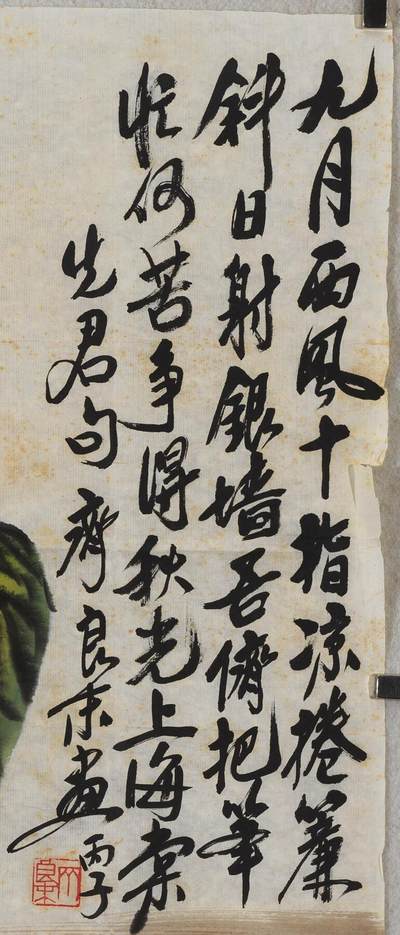 九月西風十指凉捲簾
斜日射銀墙吾儕把筆
忙何苦争得秋光上海棠
先君句 齊良末畫 丙子